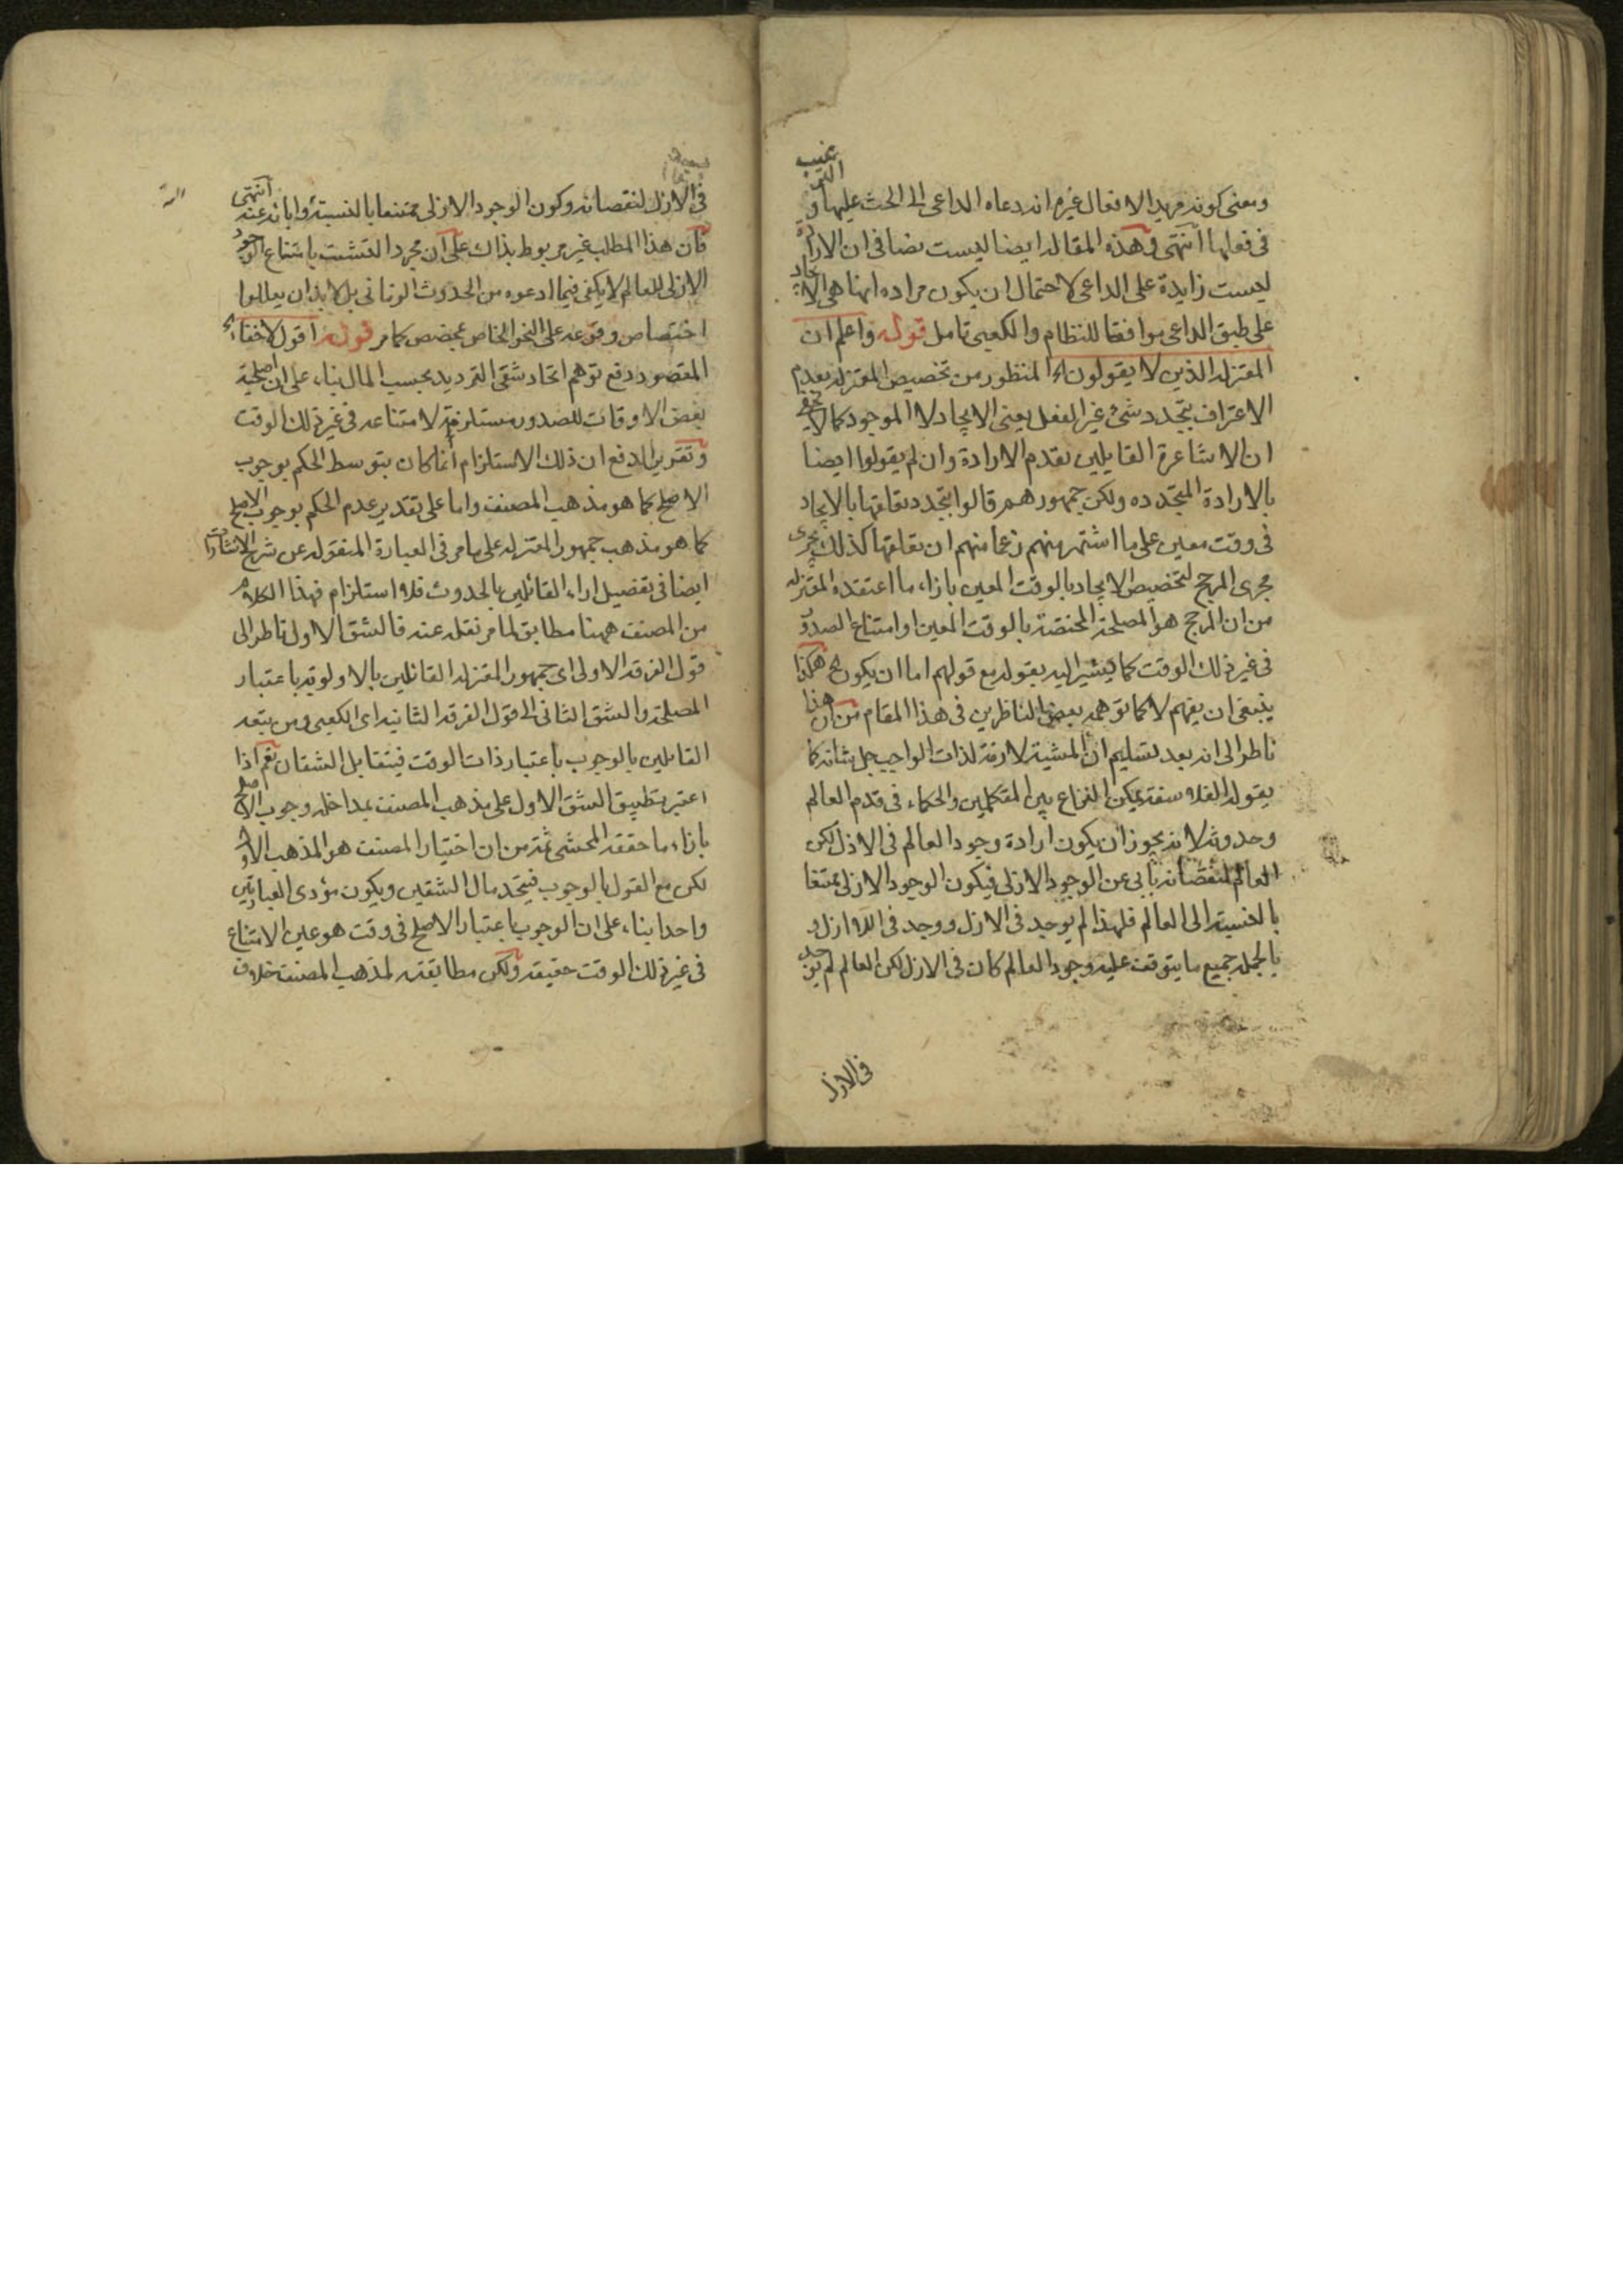 ومعنى كونه مريدا لافعال غيره انه دعاه الداعى الى الحث عليها والترغيب
فى فعلها انتهى وهذه المقاله ايضا ليست نصا فى ان الارادة
ليست زايدة على الداعى لاحتمال ان يكون مراده انها هى الايجاد
على طبق الداعى موافقا للنظام والكعبى تامل قوله واعلم ان
المعتزله الذين لا يقولون الخ المنظور من تخصيص المعتزله بعدم
الاعتراف بتجدد شئ غير الفعل يعنى الايجاد لا الموجود كما لا يخفى
ان الاشاعرة القايلين بقدم الارادة وان لم يقولوا ايضا
بالارادة المتجدده ولكن جمهورهم قالوا بتجدد تعلقها بالايجاد
فى وقت معين على ما اشتهر منهم زعما منهم ان تعلقها كذلك يجرى
مجرى المرجح لتخصيص الايجاد بالوقت المعين بازاء ما اعتقده المعتزله
من ان المرجح هو المصلحة المختصة بالوقت المعين او امتناع الصدور
فى غير ذلك الوقت كما يشير اليه بقوله مع قولهم اما ان يكون الخ هكذا
ينبغى ان يفهم لا كما توهمه بعض الناظرين فى هذا المقام من ان هذا
ناظر الى انه بعد تسليم ان المشية لازمة لذات الواجب جل شانه كما
يقوله الفلاسفة يمكن النزاع بين المتكلمين والحكماء فى قدم العالم
وحدوثه لانه يجوز ان يكون ارادة وجود العالم فى الازل لكن
العالم لنقصانه يأبى عن الوجود الازلى فيكون الوجود الازلى ممتنعا
بالنسبة الى العالم فلهذا لم يوجد فى الازل ووجد فى اللا ازل و
بالجملة جميع ما يتوقف عليه وجود العالم كان فى الازل لكن العالم لم يوجد
فى الازل
فى الازل لنقصانه وكون الوجود الازلى ممتنعا بالنسبة وابائه عنه انتهى
فان هذا المطلب غير مربوط بذاك على ان مجرد التشبث بامتناع الوجود
الازلى للعالم لا يكفى فيما ادعوه من الحدوث الزمانى بل لا بد ان يعللوا
اختصاص وقوعه على النحو الخاص بمخصص كما مر قوله اقول لا خفاء الخ
المقصود دفع توهم اتحاد شقى الترديد بحسب المال بناء على ان اصلحية
بعض الاوقات للصدور مستلزمة لامتناعه فى غير ذلك الوقت
وتقرير الدفع ان ذلك الاستلزام انما كان بتوسط الحكم بوجوب
الاصلح كما هو مذهب المصنف واما على تقدير عدم الحكم بوجوب الاصلح
كما هو مذهب جمهور المعتزله على ما مر فى العبارة المنقوله عن شرح الاشارات
ايضا فى تفصيل اراء القائلين بالحدوث فلا استلزام فهذا الكلام
من المصنف ههنا مطابق لما مر نقله عنه فالشق الاول ناظر الى
قول الفرقه الاولى اى جمهور المعتزله القائلين بالاولوية باعتبار
المصلحة والشق الثانى الى قول الفرقه الثانيه اى الكعبى ومن يتبعه
القايلين بالوجوب باعتبار ذات الوقت فيتقابل الشقان نعم اذا
اعتبر تطبيق الشق الاول على مذهب المصنف بمداخلة وجوب الاصلح
بازاء ما حققه المحشى ثمة من ان اختيار المصنف هو المذهب الاول
لكن مع القول بالوجوب فيتحد مال الشقين ويكون مؤدى العبارتين
واحدا بناء على ان الوجوب باعتبار الاصلح فى وقت هو عين الامتناع
فى غير ذلك الوقت حقيقه ولكن مطابقته لمذهب المصنف خلاف